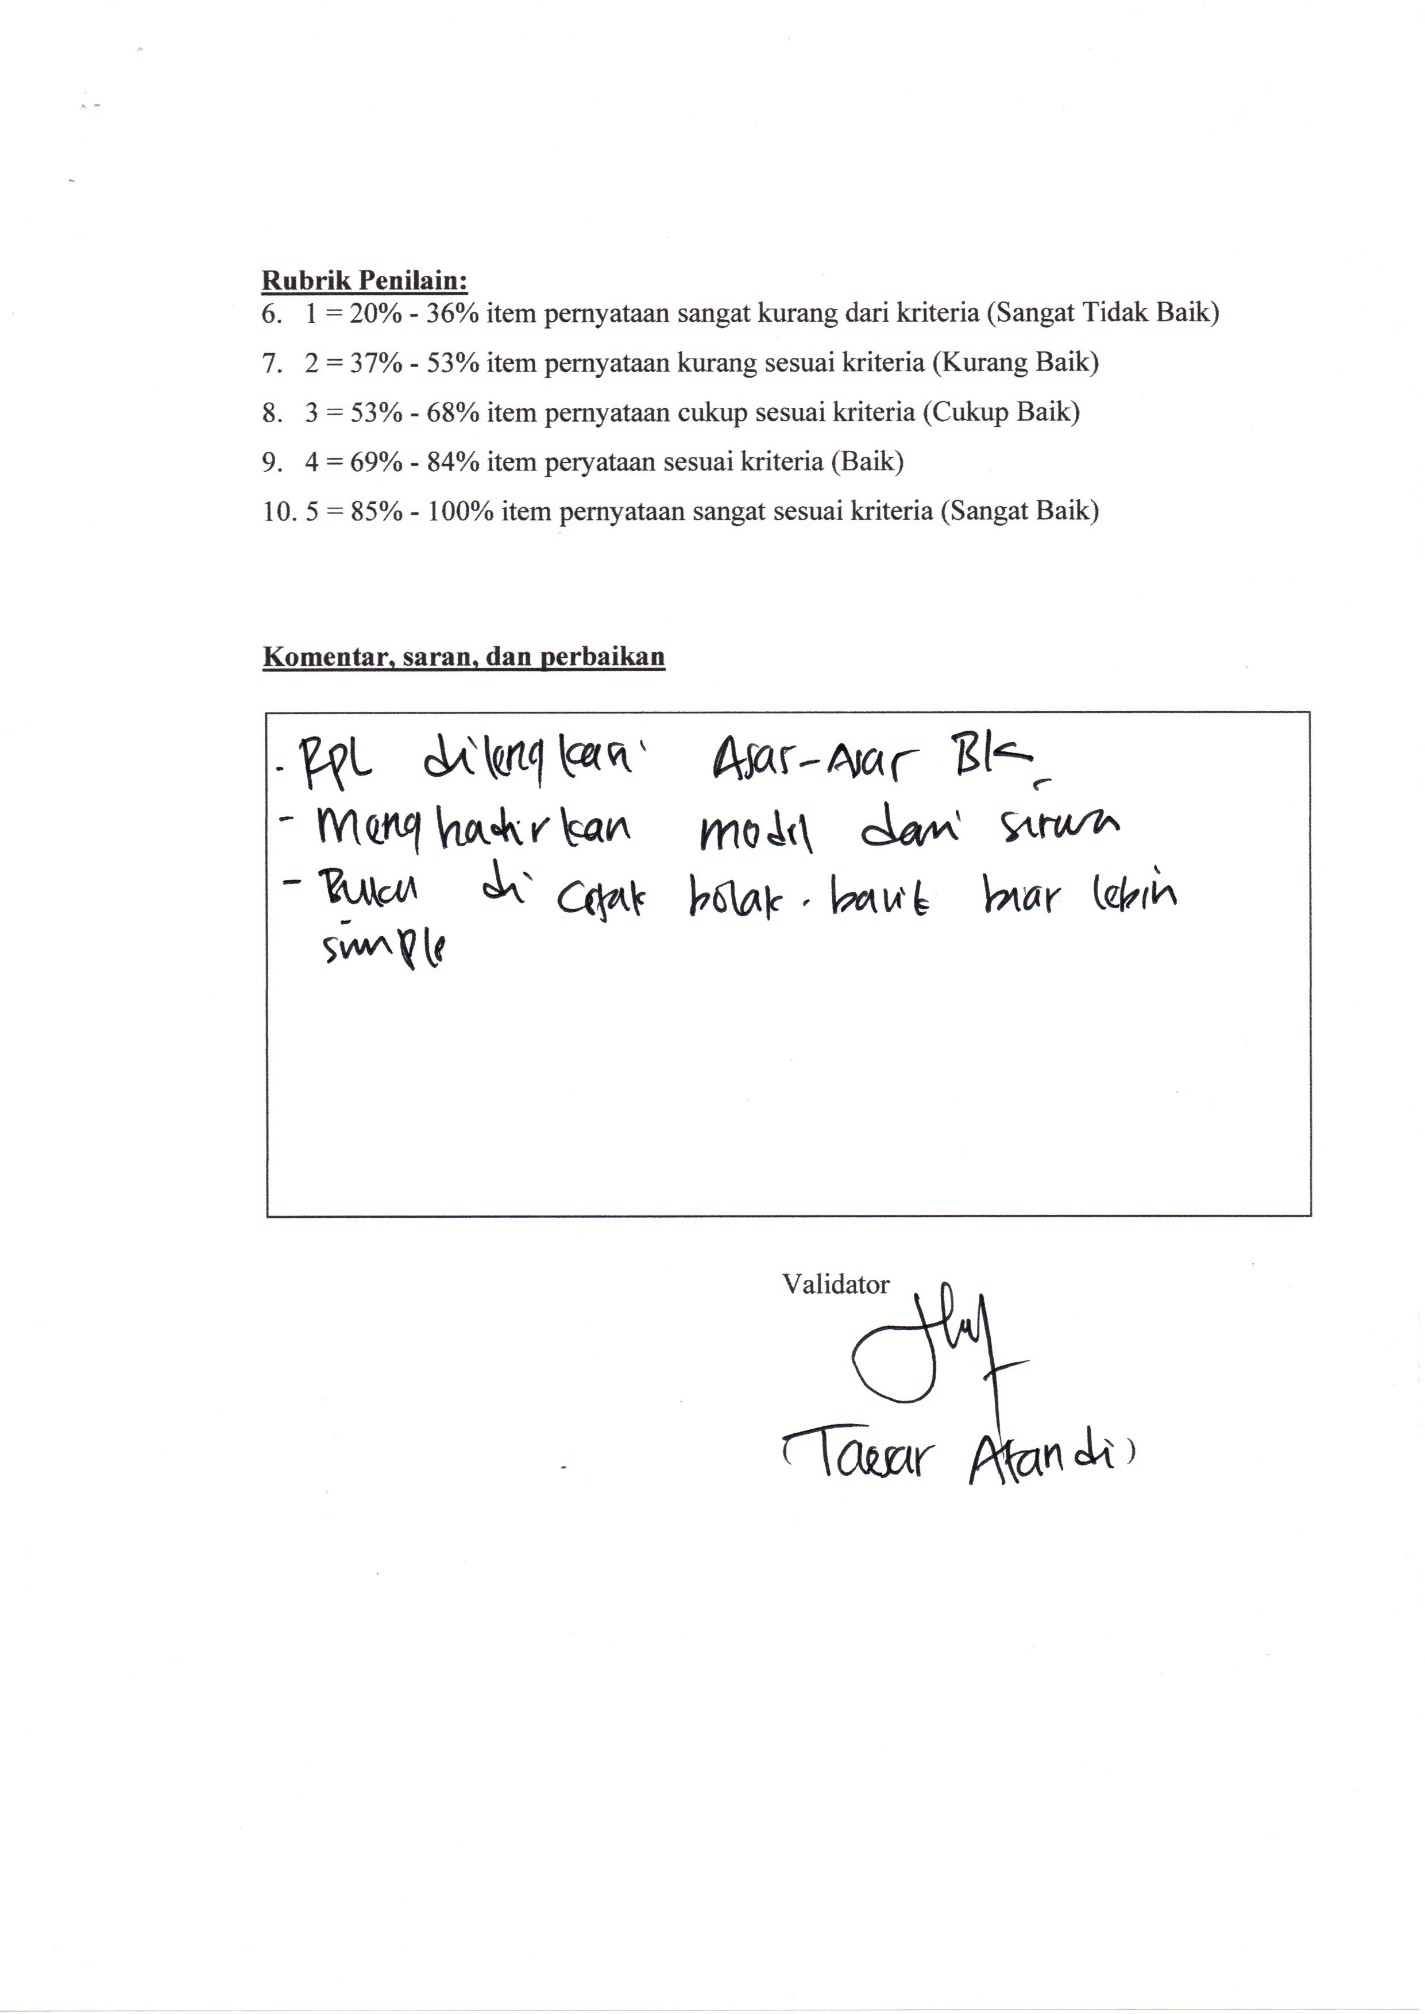 Rubrik Penilain:
6. 1 = 20% - 36% item pernyataan sangat kurang dari kriteria (Sangat Tidak Baik)
7. 2 = 37% - 53% item pernyataan kurang sesuai kriteria (Kurang Baik)
8. 3 = 53% - 68% item pernyataan cukup sesuai kriteria (Cukup Baik)
9. 4 = 69% - 84% item peryataan sesuai kriteria (Baik)
10. 5 = 85% - 100% item pernyataan sangat sesuai kriteria (Sangat Baik)
Komentar, saran, dan perbaikan
- RPL dilengkapi Asas-Asas BK
- Menghadirkan model dari siswa
- Buku di cetak bolak-balik biar lebih
simple
Validator